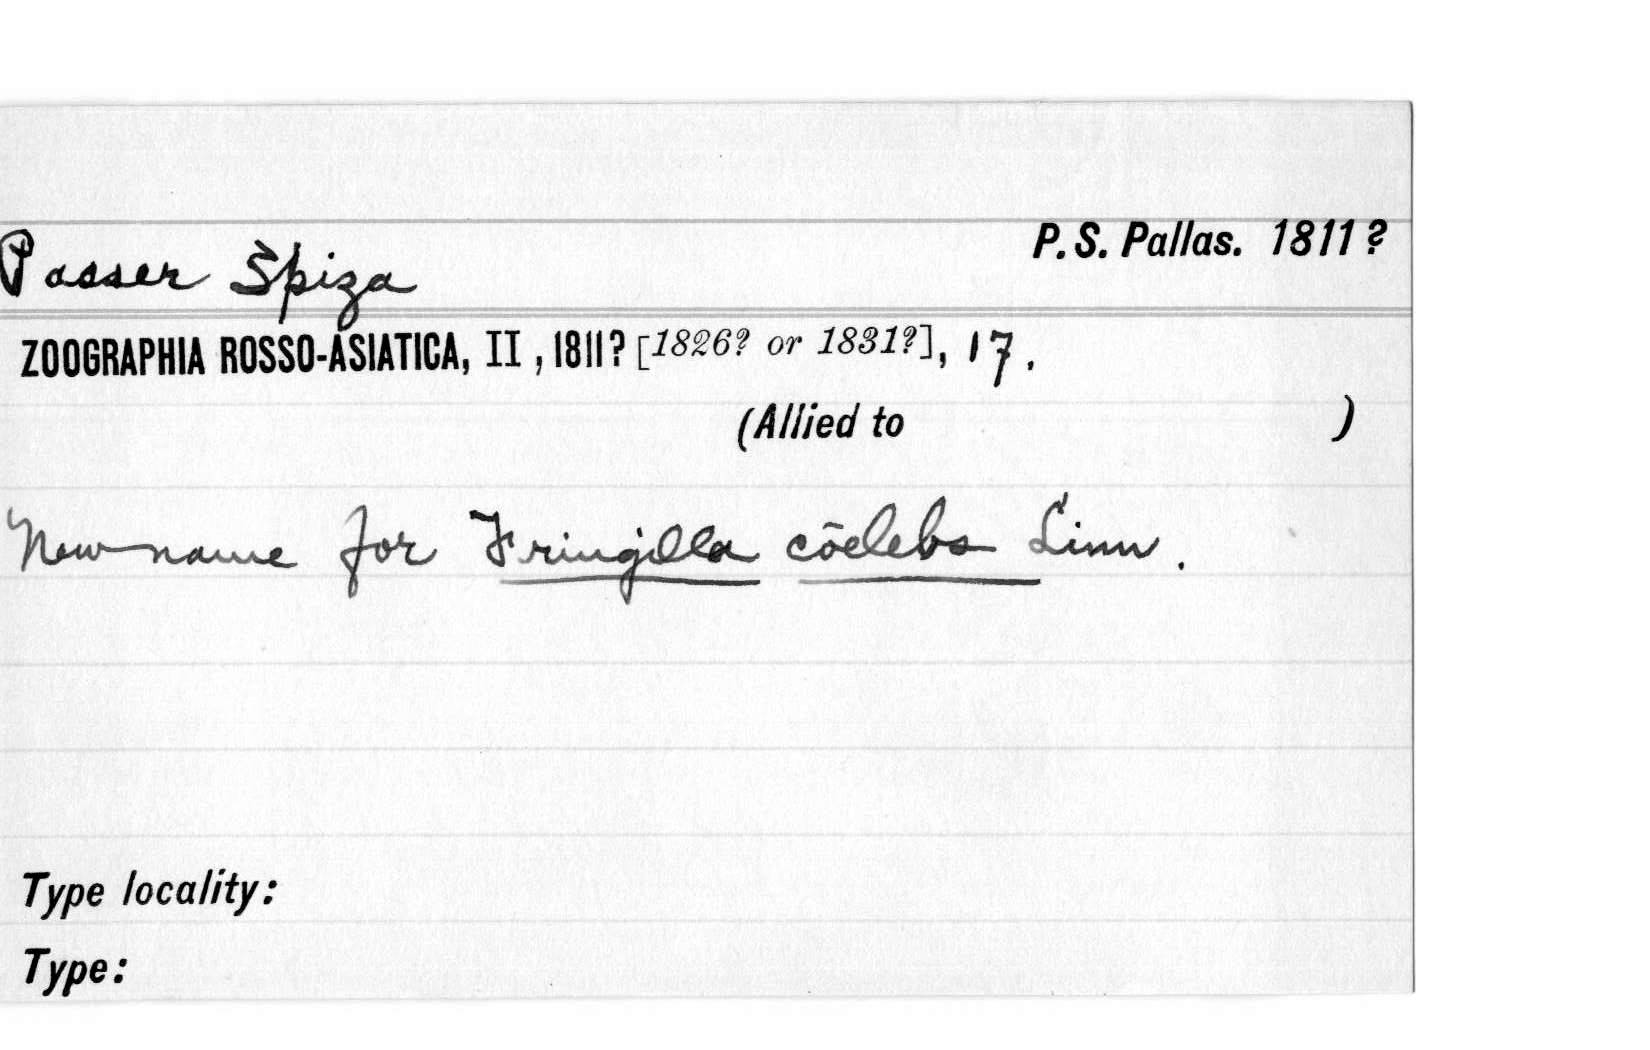 P. S. Pallas. 1811?
Passer Spiza
ZOOGRAPHIA ROSSO-ASIATICA, II, 1811? [1826? or 1831?], 17.
(Allied to )
New name for Fringilla cōelebs Linn.
Type locality:
Type: